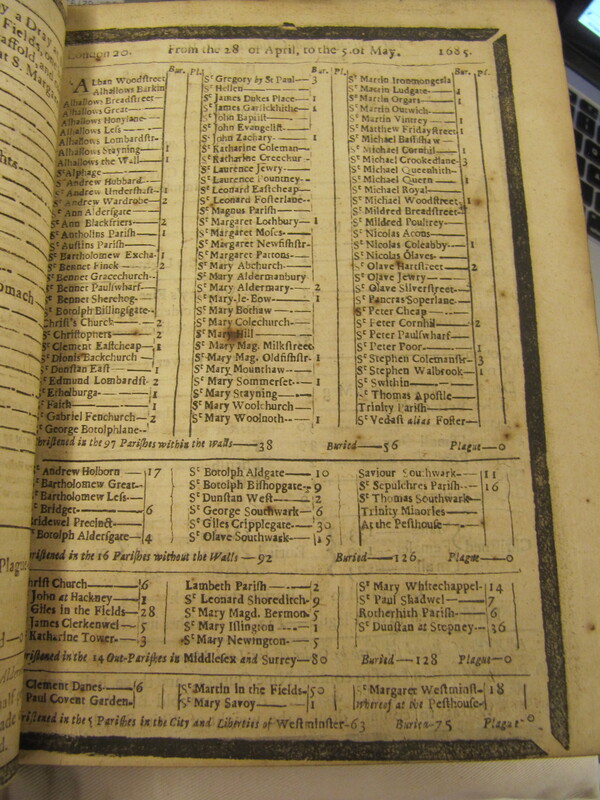 London 20. From the 28 of April, to the 5. of May. 1685.
Bur. Pl. Bur. Pl. Bur. pl.
Alban Woodstreet
Alhallows Barkin
Alhallows Breadstreet
Alhallows Great
Alhallows Honylane
Alhallows Less
Alhallows Lombardstr-
Alhallows Stayning 1
Alhallows the Wall 1
St Alphage
St Andrew Hubbard
St Andrew Undershaft 1
St Andrew Wardrobe 2
St Ann Aldersgate
St Ann Blackfriers 2
St Antholins Parish 1
St Austins Parish
St Bartholomew Excha- 1
St Bennet Finck 2
St Bennet Gracechurch
St Bennet Paulswharf
St Bennet Sherehog
St Botolph Billingsgate
Christ's Church 2
St Christophers 2
St Clement Eastcheap 1
St Dionis Backchurch
St Dunstan East 1
St Edmund Lombardst- 2
St Ethelburga 1
St Faith 1
St Gabriel Fenchurch 2
St George Botolphlane
St Gregory by St Paul 3
St Hellen
St James Dukes Place 1
St James Garlickhithe 1
St John Baptist
St John Evangelist
St John Zachary 1
St Katharine Coleman
St Katharine Creechur
St Laurence Jewry
St Laurence Pountney
St Leonard Eastcheap
St Leonard Fosterlane
St Magnus Parish
St Margaret Lothbury 1
St Margaret Moses
St Margaret Newfishstr-
St Margaret Pattons
St Mary Abchurch
St Mary Aldermanbury
St Mary Aldermary 2
St Mary-le-Bow 1
St Mary Bothaw
St Mary Colechurch
St Mary Hill
St Mary Mag. Milkstreet
St Mary Mag. Oldfishstr- 1
St Mary Mounthaw
St Mary Sommerset 1
St Mary Stayning
St Mary Woolchurch
St Mary Woolnoth 1
St Martin Ironmongerla
St Martin Ludgate 1
St Martin Orgars 1
St Martin Outwich
St Martin Vintrey 1
St Matthew Fridaystreet 1
St Michael Bassishaw
St Michael Cornhil 1
St Michael Crookedlane 3
St Michael Queenhith
St Michael Quern 1
St Michael Royal
St Michael Woodstreet
St Mildred Breadstreet
St Mildred Poultrey
St Nicolas Acons
St Nicolas Coleabby 1
St Nicolas Olaves
St Olave Hartstreet 2
St Olave Jewry
St Olave Silverstreet
St Pancras Soperlane
St Peter Cheap
St Peter Cornhil 2
St Peter Paulswharf
St Peter Poor 1
St Stephen Colemanstr- 3
St Stephen Walbrook 1
St Swithin
St Thomas Apostle
Trinity Parish
St Vedast alias Foster
hristened in the 97 Parishes within the Walls—38 Buried—56 Plague—0
St Andrew Holborn 17
St Bartholomew Great
St Bartholomew Less
St Bridget 6
Bridewel Precinct
Botolph Aldersgate 4
St Botolph Aldgate 10
St Botolph Bishopgate 9
St Dunstan West 2
St George Southwark 6
St Giles Cripplegate 30
St Olave Southwark 15
Saviour Southwark 11
St Sepulchres Parish 16
St Thomas Southwark
Trinity Minories
At the Pesthouse
ristened in the 16 Parishes without the Walls—92 Buried—126. Plague—0
hrist Church 6
John at Hackney 1
Giles in the Fields 28
James Clerkenwel 5
Katharine Tower 3
Lambeth Parish 2
St Leonard Shoreditch 9
St Mary Magd. Bermon 5
St Mary Islington 1
St Mary Newington 5
St Mary Whitechappel 14
St Paul Shadwel 7
Rotherhith Parish 6
St Dunstan at Stepney 36
ristened in the 14 Out-Parishes in Middlesex and Surrey—80 Buried—128 Plague—0
Clement Danes 6
Paul Covent Garden
St Martin in the Fields 50
St Mary Savoy 1
St Margaret Westminst- 18
whereof at the Pesthouse
ristened in the 5 Parishes in the City and Liberties of Westminster-63 Buried-75 Plague-0